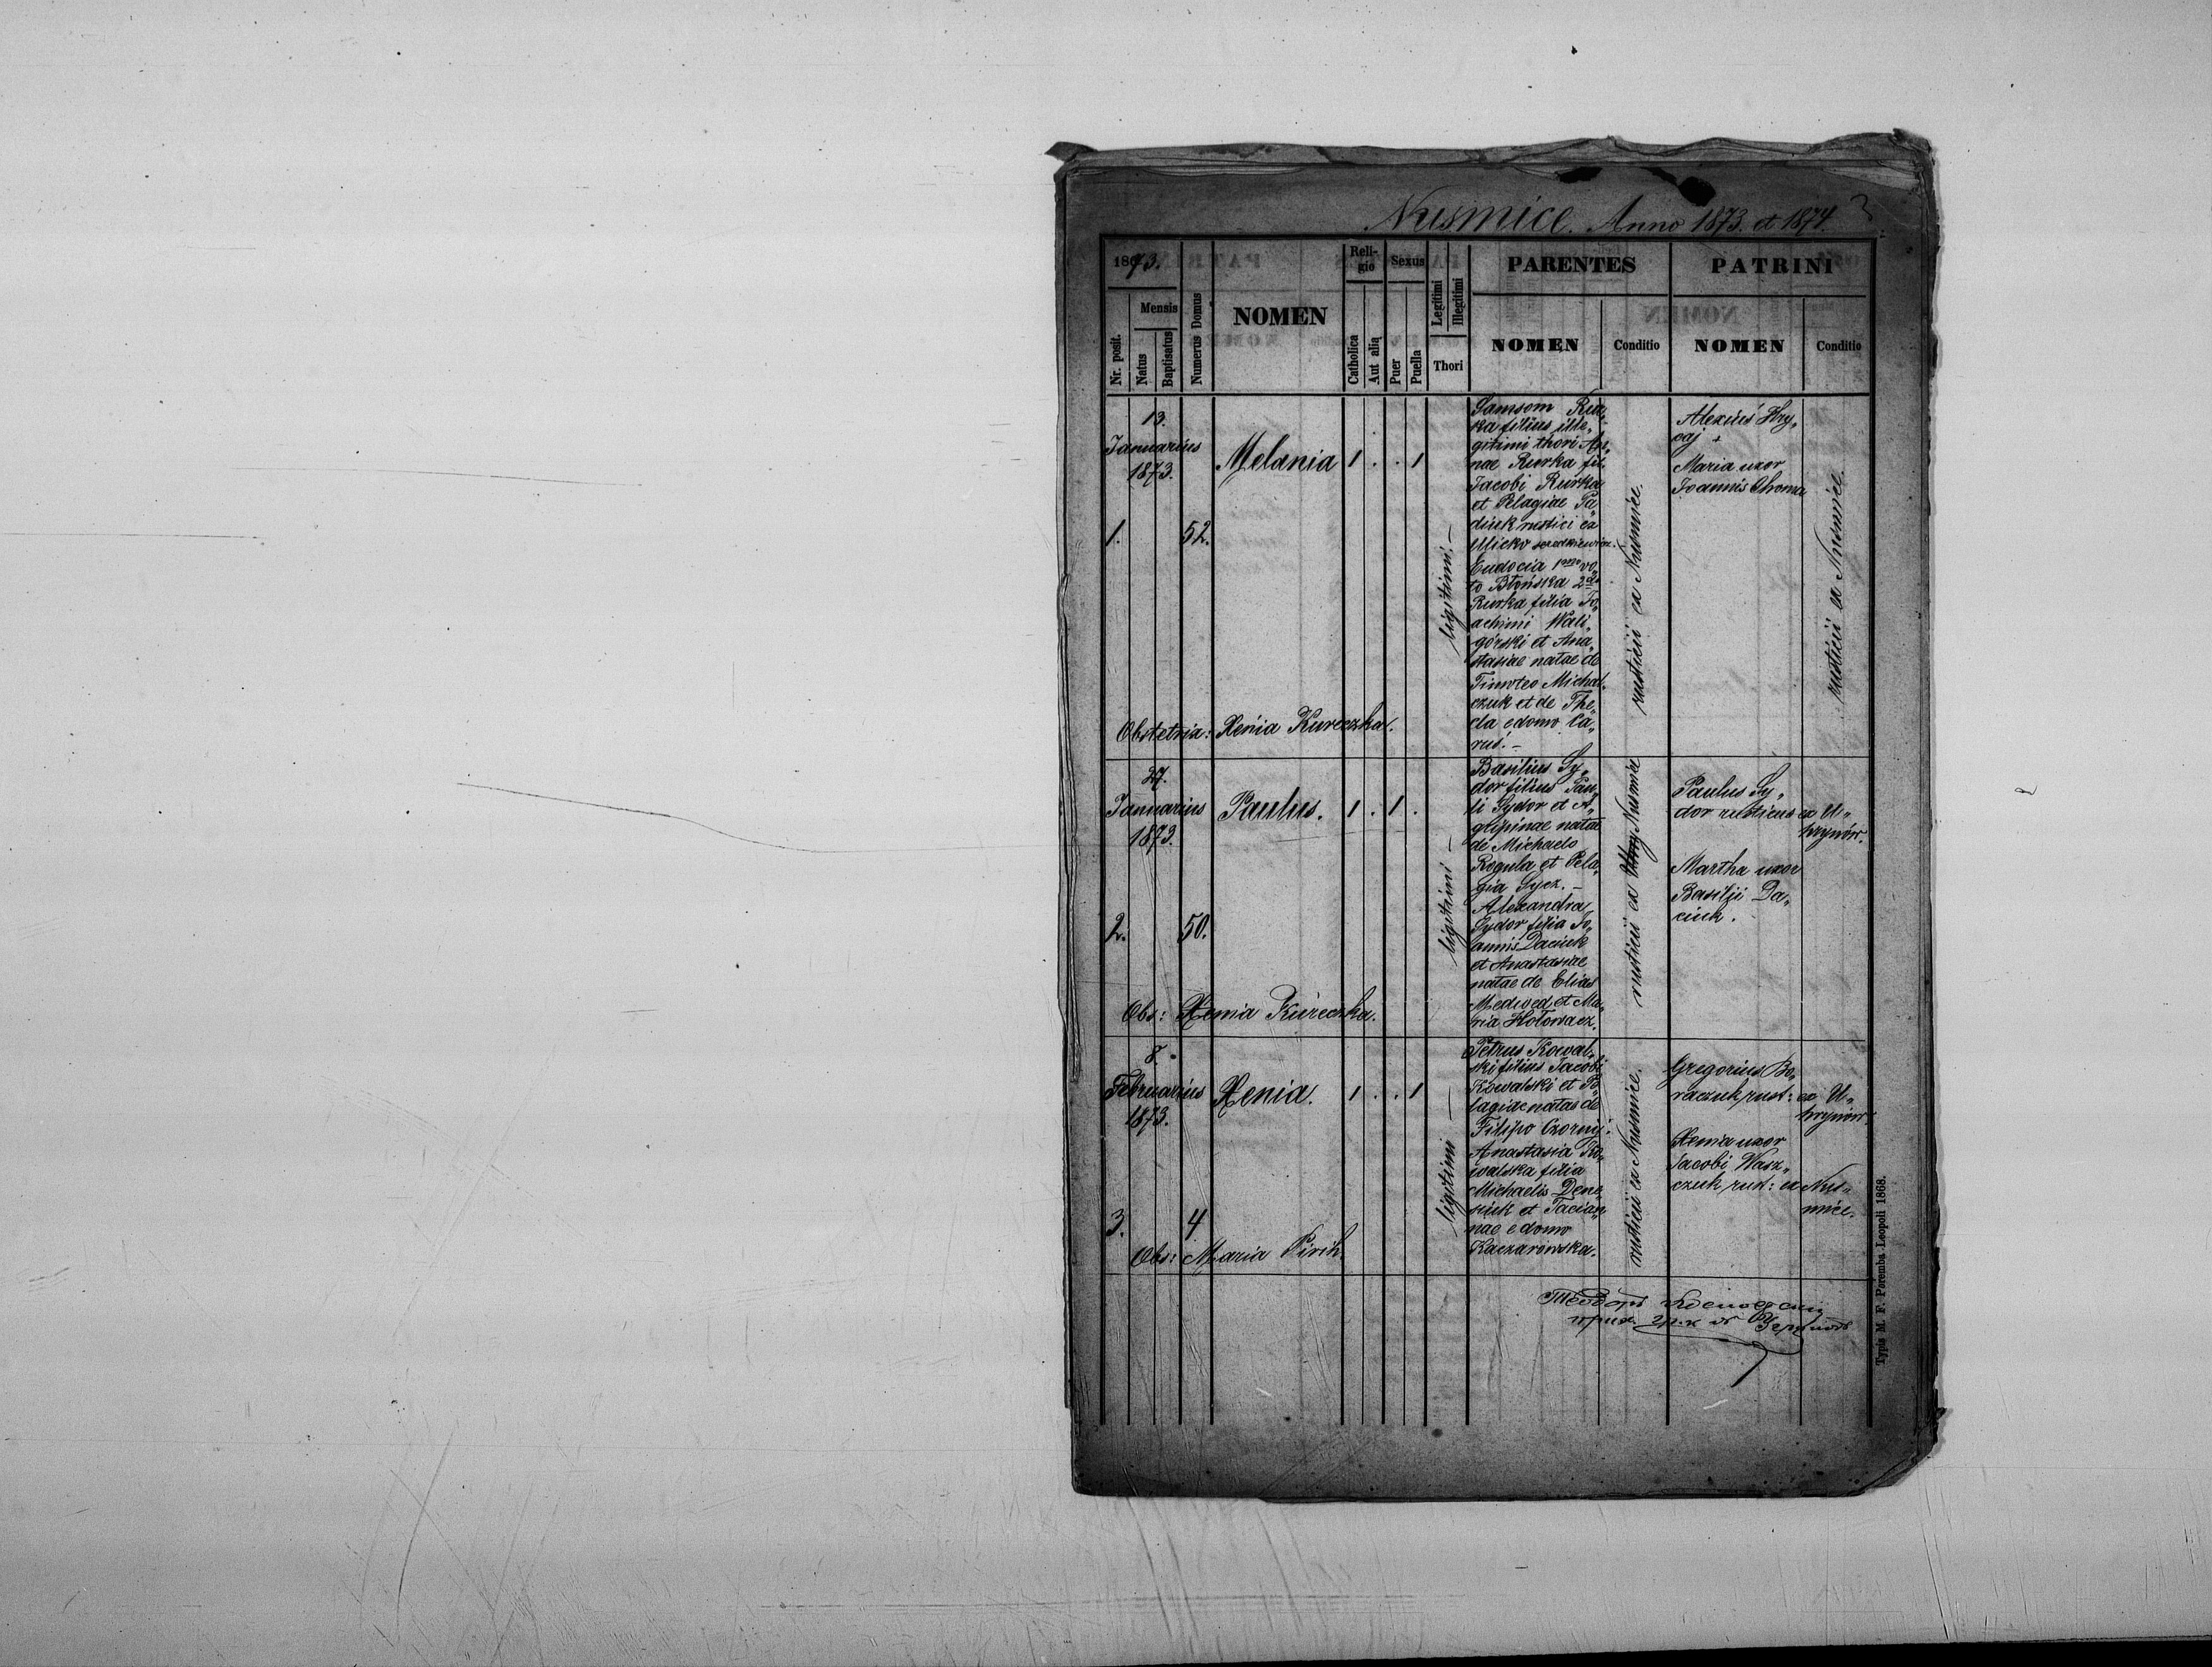 Nusmice. Anno 1873. et 1874.
1873.
Mensis
Nr. posit.
Natus
Baptisatus
Numerus Domus
NOMEN
Religio
Catholica
Aut alia
Sexus
Puer
Puella
Legitimi
Illegitimi
Thori
PARENTES
NOMEN
Conditio
PATRINI
NOMEN
Conditio
13.
Januarius
1873.
1.
52.
Melania
1 . . 1
legitimi. —
Samsom Rur„
ka filius ille„
gitimi thori An„
nae Rurka fil.
Jacobi Rurka
et Pelagiae Pa„
diuk rustici ex
Ulicko seredkiewicz.
Eudocia 1mo vo„
to Błońska 2do
Rurka filia Jo„
achimi Wali„
górski et Ana„
stasiae natae de
Timoteo Michal„
czuk et de The„
cla e domo Ca„
rus. —
rusticii ex Nusmice.
Alexius Hry„
caj +
Maria uxor
Joannis Chroma
rusticii ex Nusmice.
Obstetrix: Xenia Kureczka.
27.
Januarius
1873.
2.
50.
Paulus.
1 . 1 .
legitimi —
Basilius Sy„
dor filius Pau„
li Sydor et A„
gripinae natae
de Michaelo
Regula et Pela„
gia Sycz. —
Alexandra
Sydor filia Jo„
annis Daciuk
et Anastasiae
natae de Elias
Medwed et Ma„
ria Hołowacz.
rusticii ex Nusmice
Paulus Sy„
dor rusticus ex U„
hrynów.
Martha uxor
Basilii Da„
ciuk.
Obs: Xenia Kureczka.
8.
Februarius
1873.
3.
4
Xenia.
1 . . 1
legitimi —
Petrus Kowal„
ski filius Jacobi
Kowalski et Pe„
lagiae natae de
Filipo Czornij.
Anastasia Ko„
walska filia
Michaelis Dene„
siuk et Tacian„
nae e domo
Kaczarowska.
rusticii ex Nusmice.
Gregorius Bo„
raczuk rust: ex U„
hrynów.
Xenia uxor
Jacobi Wasz„
czuk rust: ex Nus„
mice.
Obs: Maria Pirih.
Теодоръ
Typis M. F. Poremba Leopoli 1868.